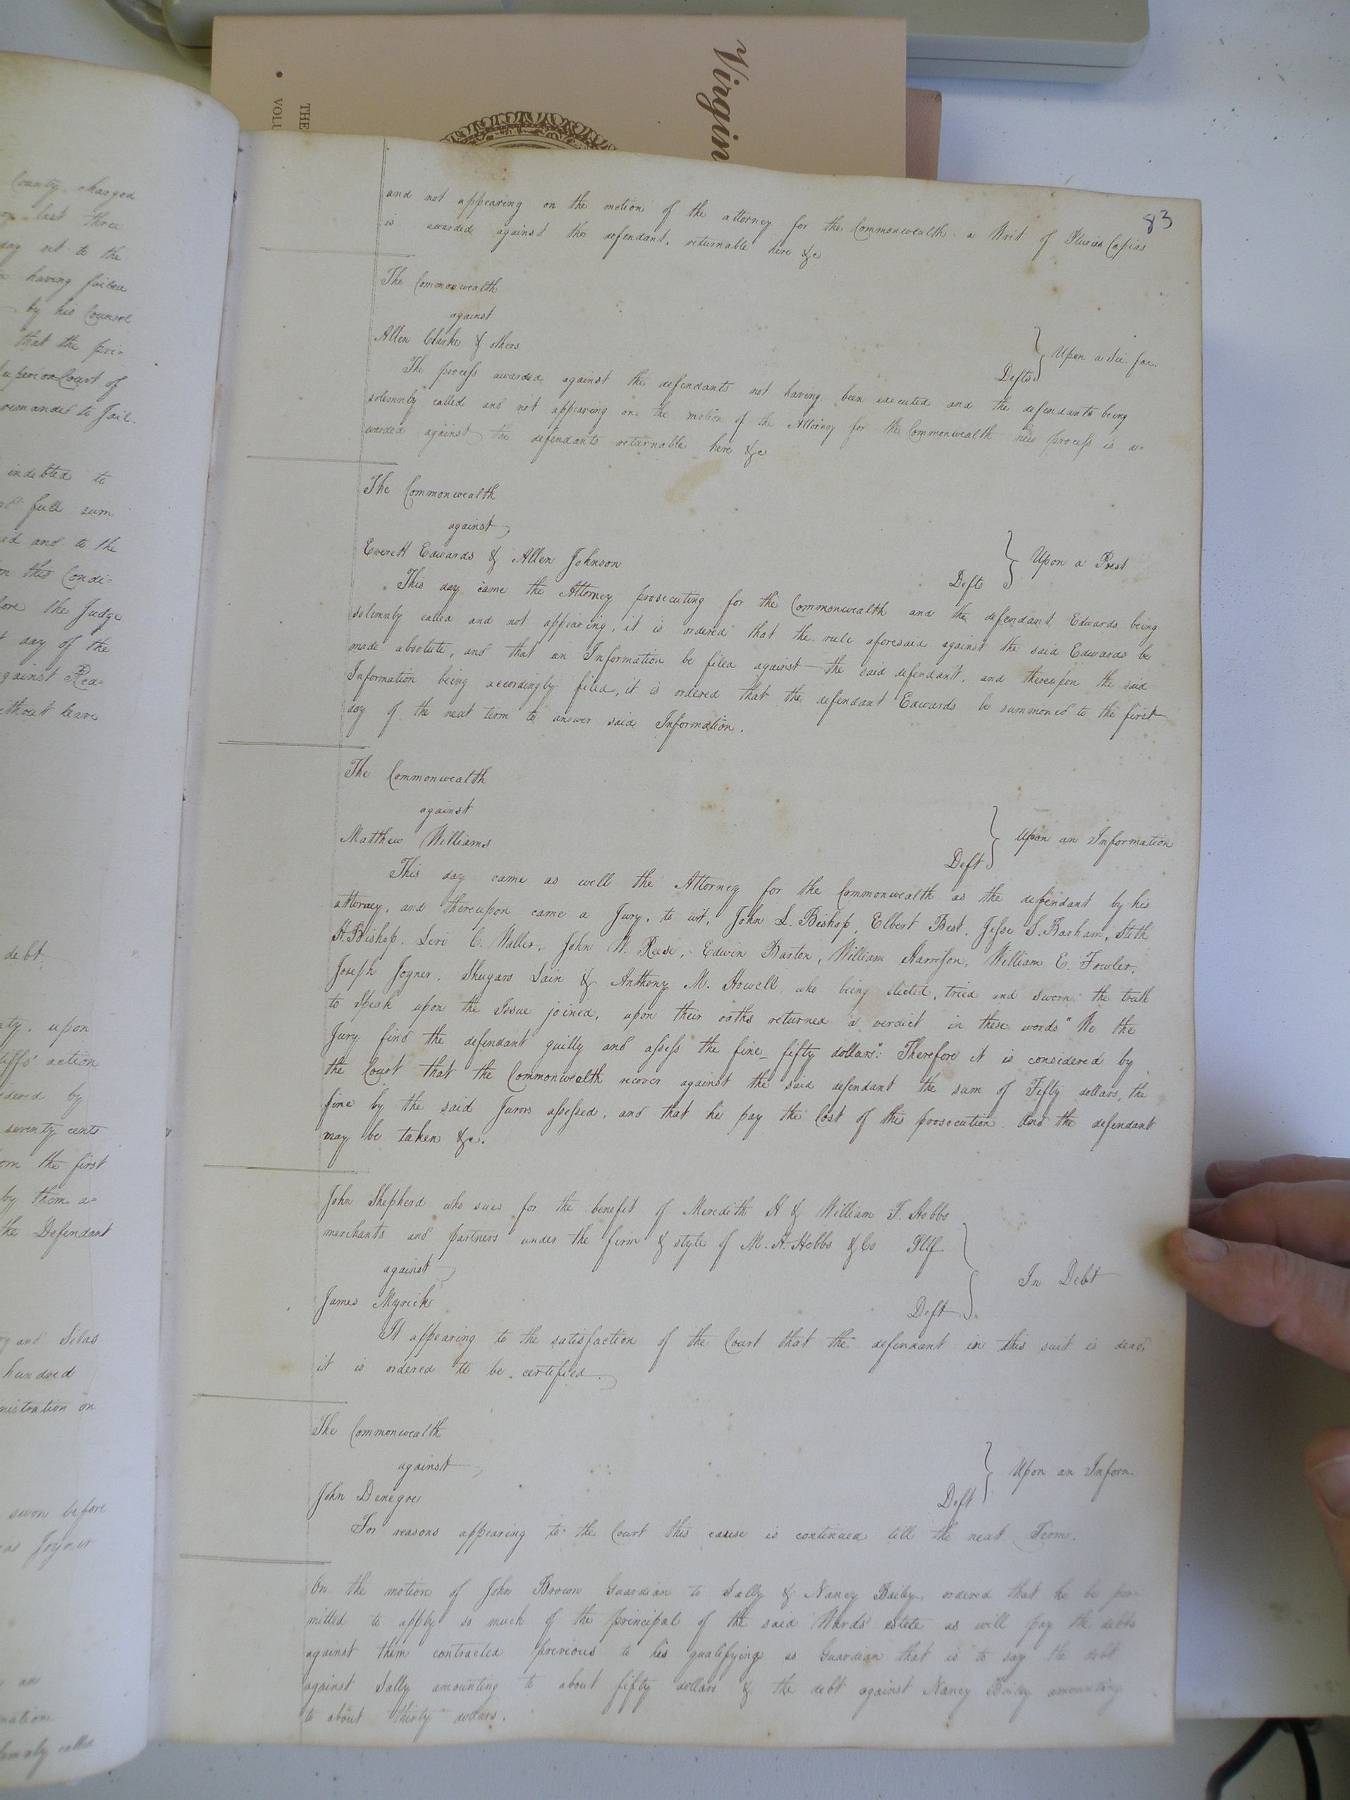 Virgin
THE
VOLU
83
County charged
last three
day set to the
having failed
by his Counsel
that the pri-
Superior Court of
remanded to Jail.
indebted to
full sum
and to the
on this Condi-
the Judge
day of the
against Rea-
without leave
debt
upon
action
by
seventy cents
from the first
by them a-
the Defendant
and Silas
hundred
administration on
sworn before
Joyner
an
called
and not appearing on the motion of the attorney for the Commonwealth a Writ of Pluries Capias
is awarded against the defendant, returnable here &c
The Commonwealth
against
Allen Clarke & others Defts } Upon a Sci. fac.
The process awarded against the defendants not having been executed and the defendants being
solemnly called and not appearing on the motion of the Attorney for the Commonwealth new process is a-
warded against the defendants returnable here &c
The Commonwealth
against
Everett Edwards & Allen Johnson Defts } Upon a Prest
This day came the Attorney prosecuting for the Commonwealth and the defendant Edwards being
solemnly called and not appearing, it is ordered that the rule aforesaid against the said Edwards be
made absolute, and that an Information be filed against the said defendant, and thereupon the said
Information being accordingly filed, it is ordered that the defendant Edwards be summoned to the first
day of the next term to answer said Information.
The Commonwealth
against
Matthew Williams Deft } Upon an Information
This day came as well the Attorney for the Commonwealth as the defendant by his
attorney, and thereupon came a Jury, to wit, John L. Bishop, Elbert Best, Jesse S. Barham, Sith
H. Bishop, Levi C. Waller, John W. Reese, Edwin Barton, William Harrison, William E. Fowler,
Joseph Joyner, Shugars Lain & Anthony M. Howell who being elected, tried and sworn the truth
to speak upon the Issue joined, upon their oaths returned a verdict in these words "We the
Jury find the defendant guilty and assess the fine fifty dollars": Therefore it is considered by
the Court that the Commonwealth recover against the said defendant the sum of Fifty dollars, the
fine by the said Jurors assessed, and that he pay the Cost of this prosecution. And the defendant
may be taken &c.
John Shepherd who sues for the benefit of Meredith H & William F. Hobbs
merchants and partners under the firm & style of M. H. Hobbs & Co Pltf
against } In Debt
James Myrick Deft
It appearing to the satisfaction of the Court that the defendant in this suit is dead,
it is ordered to be certified.
The Commonwealth
against
John Denegre Deft } Upon an Inform.
For reasons appearing to the Court this cause is continued till the next Term.
On the motion of John Brown Guardian to Sally & Nancy Baily, ordered that he be per-
mitted to apply so much of the principal of the said Wards estate as will pay the debts
against them contracted previous to his qualifying as Guardian that is to say the debt
against Sally amounting to about fifty dollars & the debt against Nancy Baily amounting
to about thirty dollars.